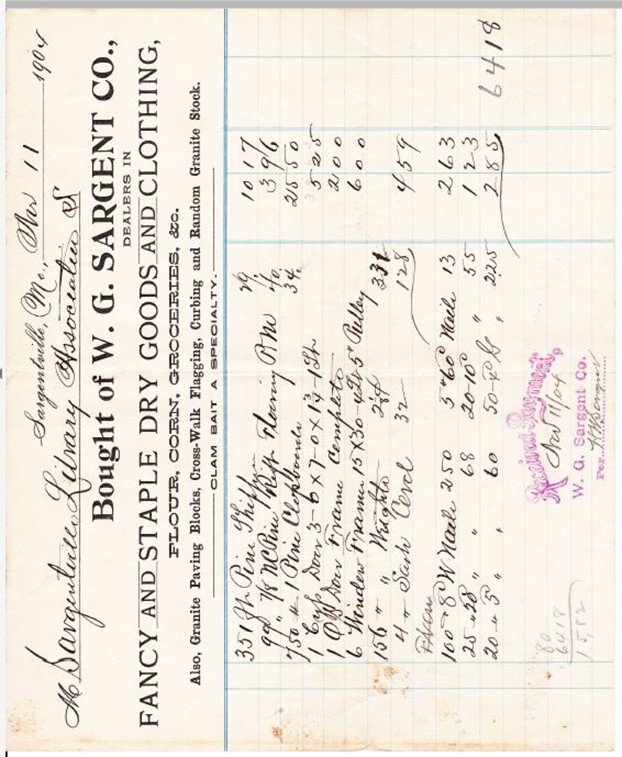 Sargentville, Me., Nov 11 1904
M Sargentville Library Association
Bought of W. G. SARGENT CO.,
DEALERS IN
FANCY AND STAPLE DRY GOODS AND CLOTHING,
FLOUR, CORN, GROCERIES, &c.
Also, Granite Paving Blocks, Cross-Walk Flagging, Curbing and Random Granite Stock.
CLAM BAIT A SPECIALTY.
351 ft Pine 29 10 17
7/8 NC Pine Flooring 3 96
750 " 1 Pine Clapboards 34 25 50
1 Cyp Door 3-0 x 7-0 x 1 3/4 5 25
1 O Door Frame Complete 2 00
6 Window Frames 15 x 30 Pulley 6 00
156 " " Weights 331
4 " Sash Cord 32 128 4 59
100 " 8 W Nails 250 5 " 60 Nails 13 2 63
25 " 28 " " 68 20 " 10 " 55 1 23
20 " 5 " " 60 50 " " 225 2 85
64 18
Received Payment,
Nov 11/04
W. G. Sargent Co.
Per
80
6418